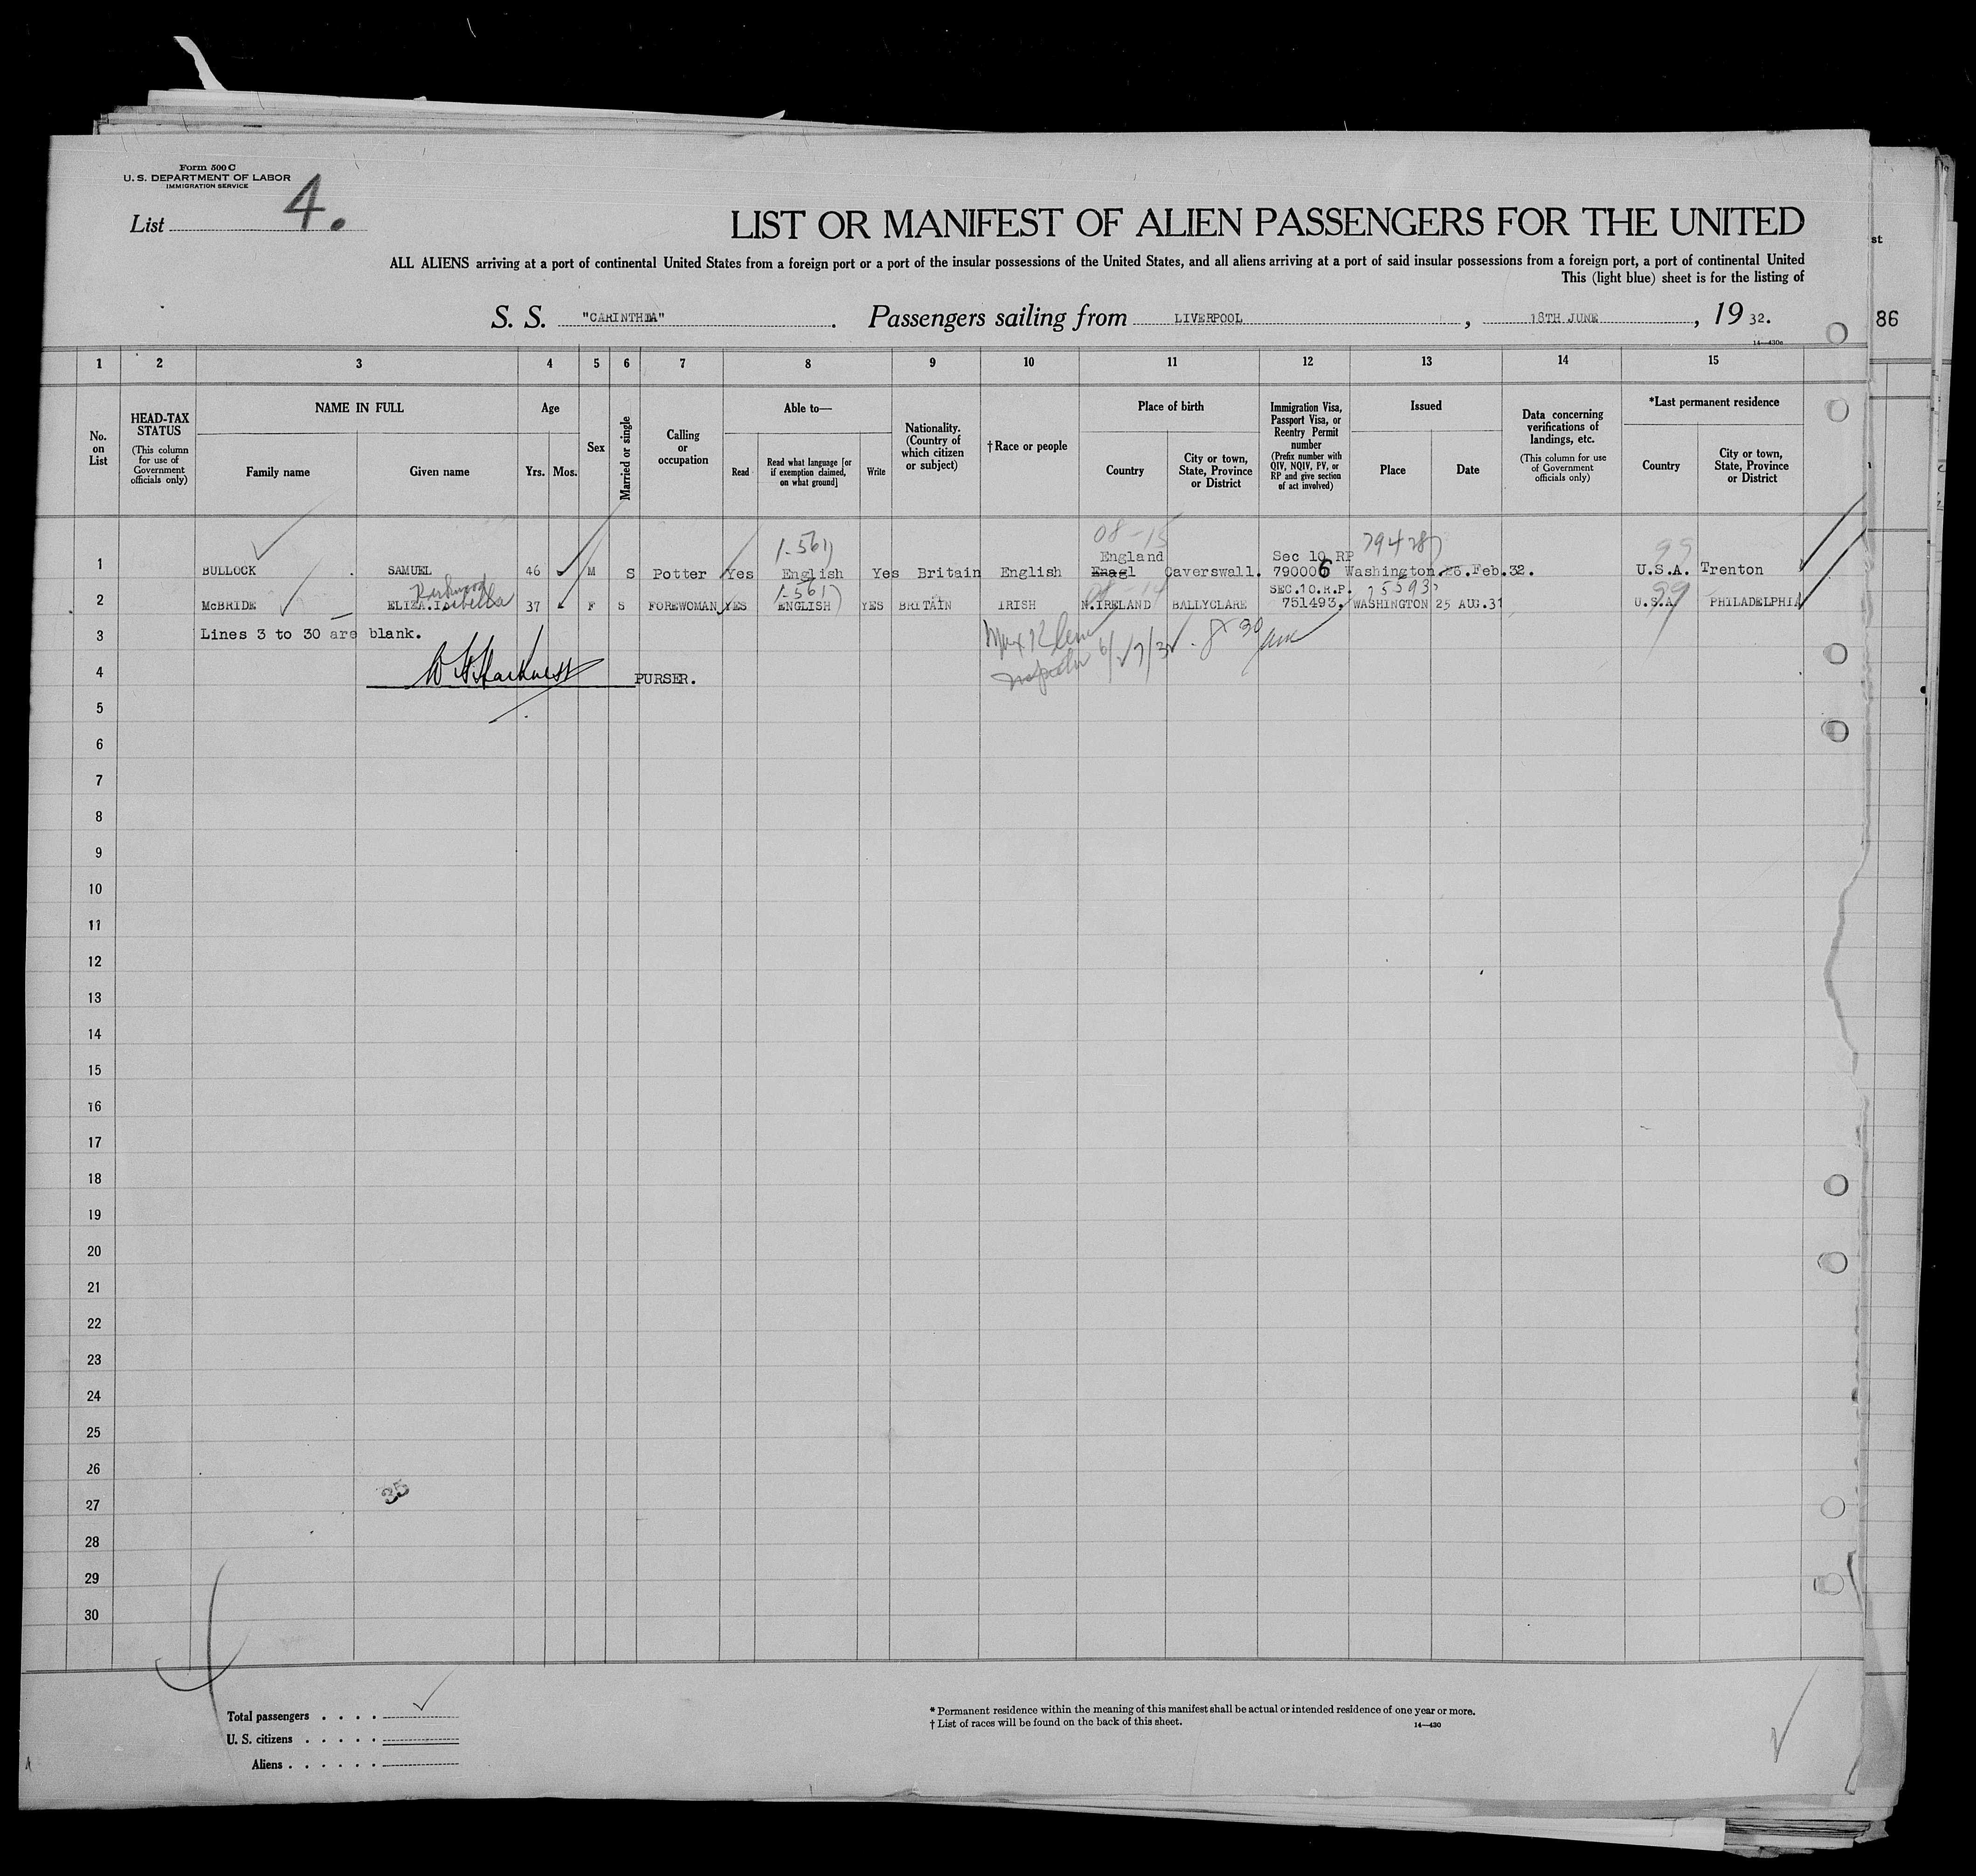 Form 500 C
U. S. DEPARTMENT OF LABOR
IMMIGRATION SERVICE
List 4.
LIST OR MANIFEST OF ALIEN PASSENGERS FOR THE UNITED
ALL ALIENS arriving at a port of continental United States from a foreign port or a port of the insular possessions of the United States, and all aliens arriving at a port of said insular possessions from a foreign port, a port of continental United
This (light blue) sheet is for the listing of
st
S. S. "CARINTHIA". Passengers sailing from LIVERPOOL, 18TH JUNE, 19 32.
86
14—430c
1 2 3 4 5 6 7 8 9 10 11 12 13 14 15
No. on List
HEAD-TAX STATUS (This column for use of Government officials only)
NAME IN FULL
Family name Given name
Age
Yrs. Mos.
Sex
Married or single
Calling or occupation
Able to—
Read Read what language [or if exemption claimed, on what ground] Write
Nationality. (Country of which citizen or subject)
† Race or people
Place of birth
Country City or town, State, Province or District
Immigration Visa, Passport Visa, or Reentry Permit number (Prefix number with QIV, NQIV, PV, or RP and give section of act involved)
Issued
Place Date
Data concerning verifications of landings, etc. (This column for use of Government officials only)
*Last permanent residence
Country City or town, State, Province or District
08-15
1-561 England Sec 10 RP 794287 99
1 BULLOCK SAMUEL 46 M S Potter Yes English Yes Britain English Enagl Caverswall. 790006 Washington. 26.Feb.32. U.S.A. Trenton
1-561 SEC.10.R.P. 99
2 McBRIDE ELIZA.Isabella 37 F S FOREWOMAN YES ENGLISH YES BRITAIN IRISH N.IRELAND BALLYCLARE 751493, WASHINGTON 25 AUG.31 U.S.A PHILADELPHIA
3 Lines 3 to 30 are blank.
4 PURSER.
5
6
7
8
9
10
11
12
13
14
15
16
17
18
19
20
21
22
23
24
25
26
35
27
28
29
30
Total passengers . . . .
U. S. citizens . . . . .
Aliens . . . . . .
* Permanent residence within the meaning of this manifest shall be actual or intended residence of one year or more.
† List of races will be found on the back of this sheet. 14—430